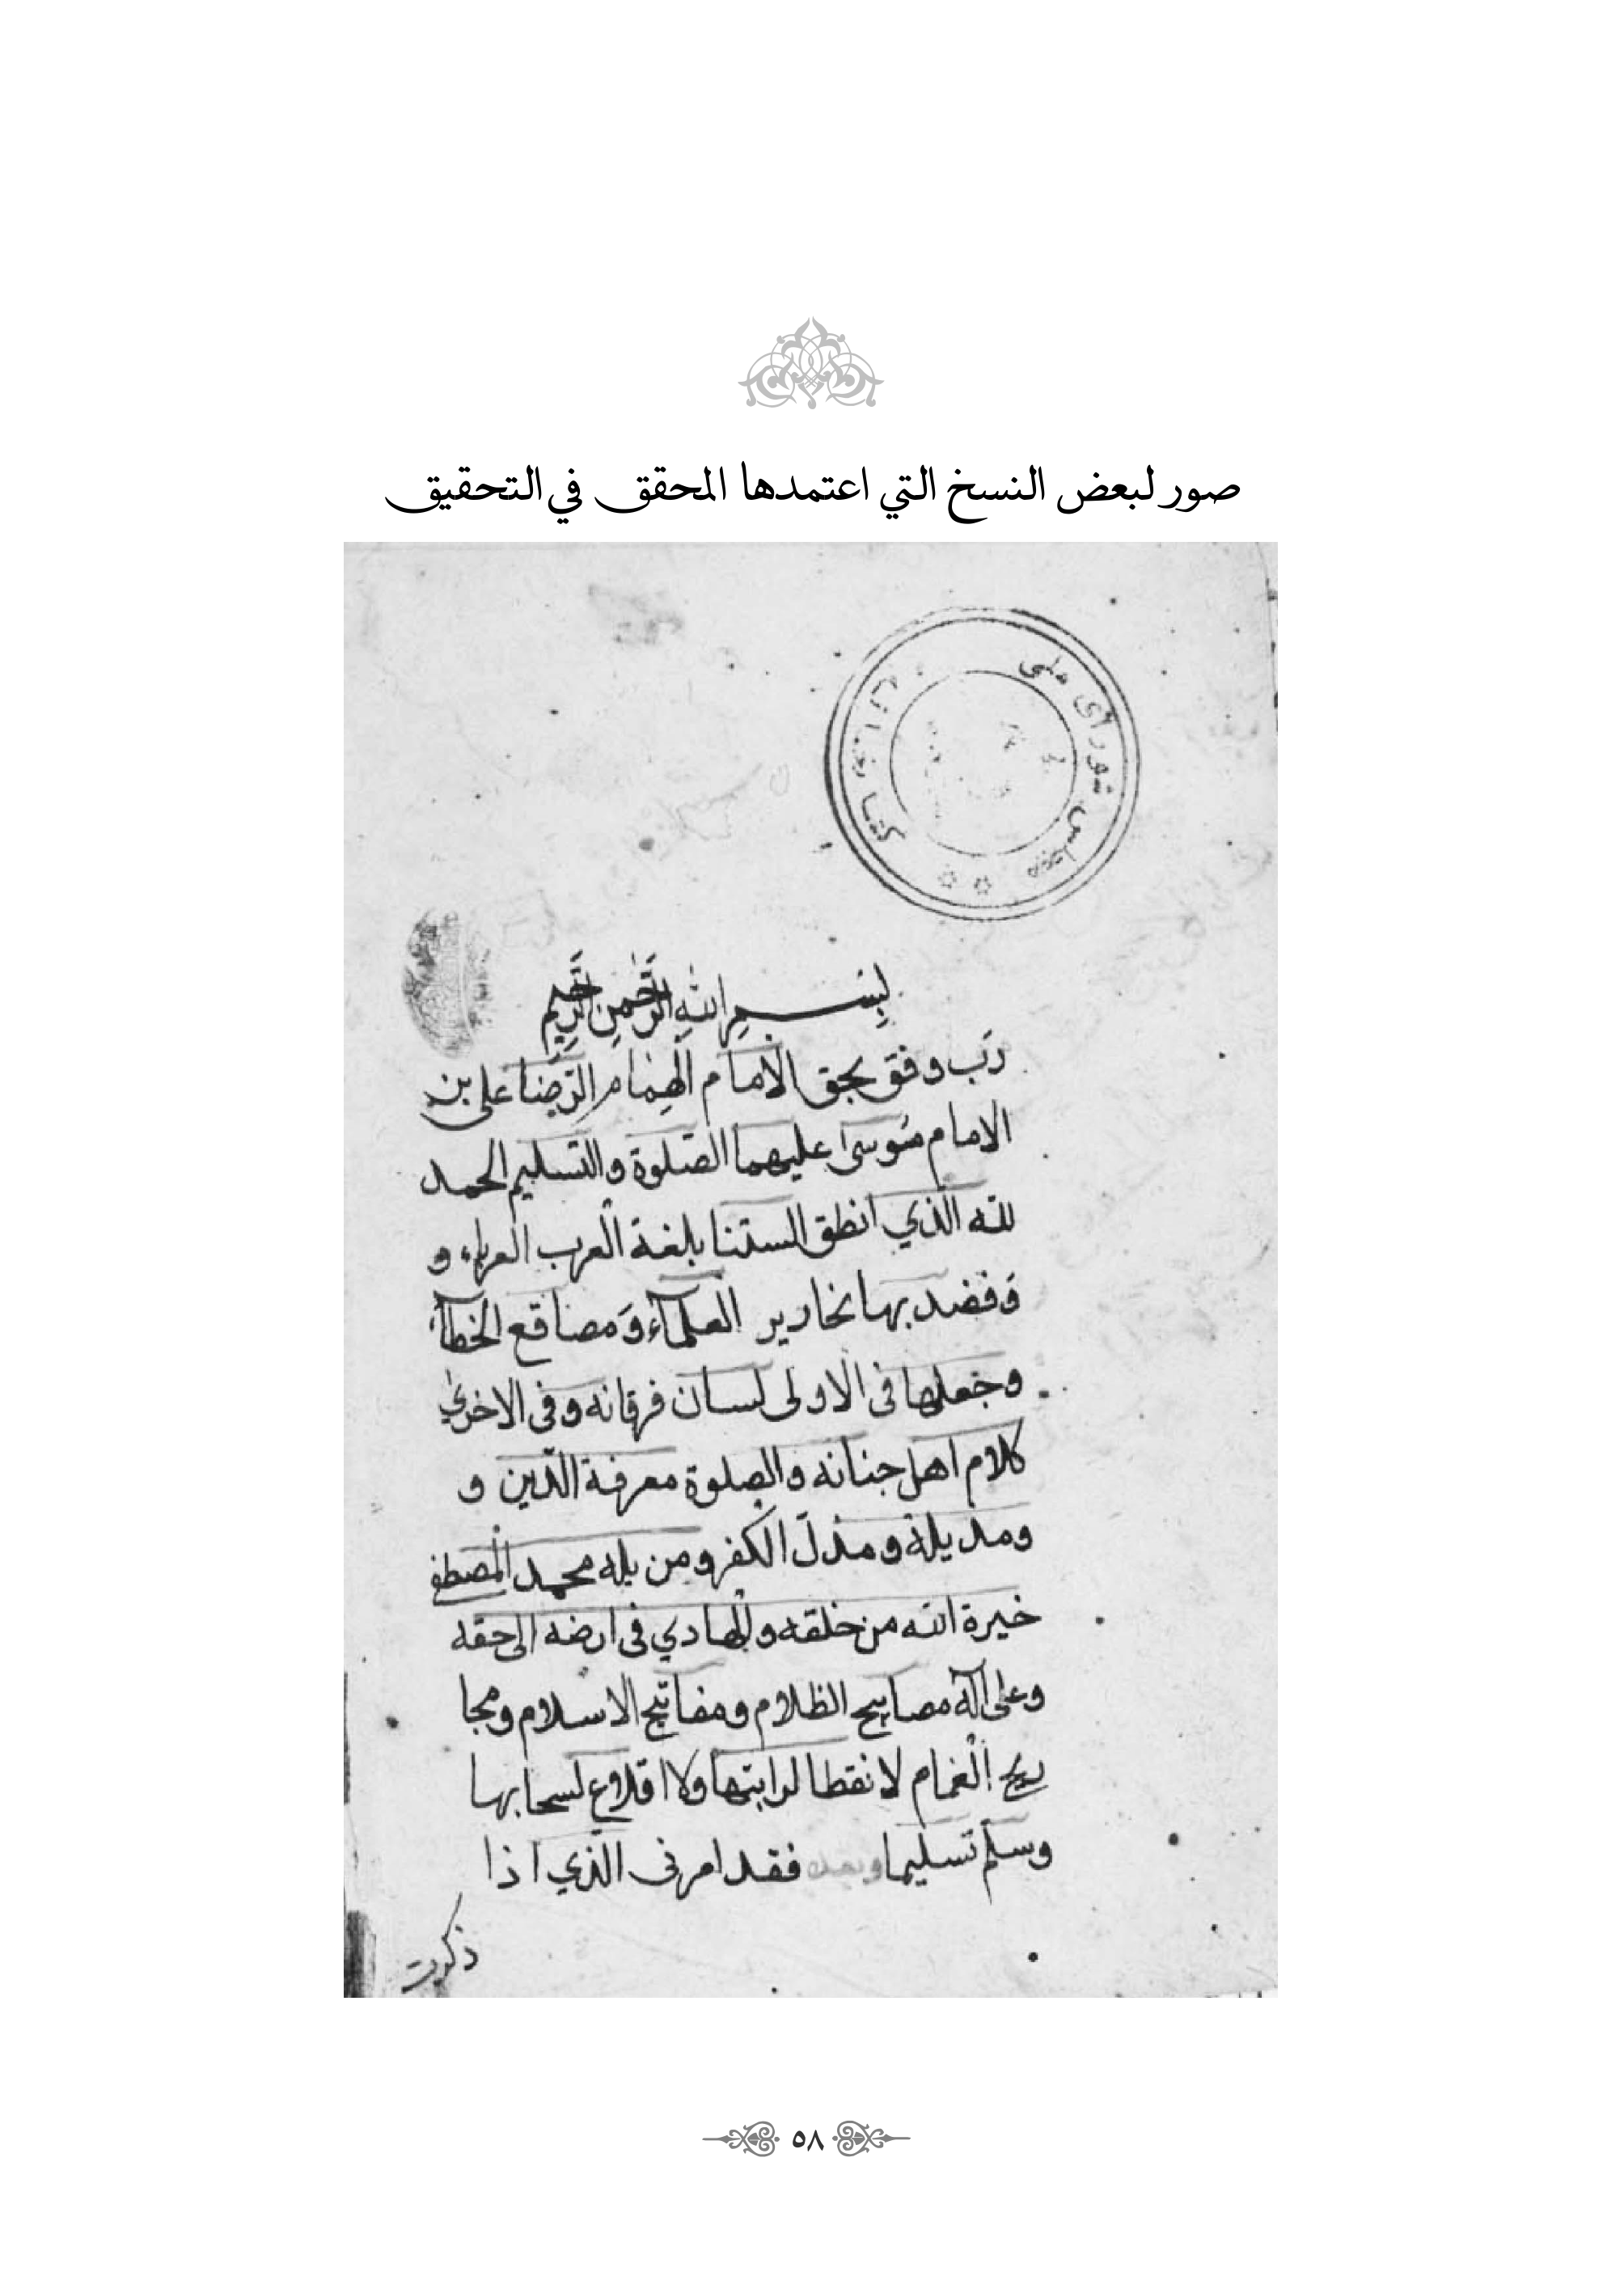 صور لبعض النسخ التي اعتمدها المحقق في التحقيق
كتابخانه مجلس شورای ملی
بِسْمِ اللهِ الرَّحْمٰنِ الرَّحِيمِ
رَب وفق بحق الامام الهمام الرّضا على بن
الامام موسى عليهما الصلوة والتسليم الحمد
لله الذي انطق السنتنا بلغة العرب العرباء و
وَفضد بها نحارير العلماء وَ مصاقع الخطباء
وجعلها فى الاولى لسان فرقانه وفى الاخرى
كلام اهل جنانه والصلوة معرفة الدّين و
ومديله ومذل الكفر ومن يله محمد المصطفى
خيرة الله من خلقه والهادي فى ارضه الى حقه
وعلى آله مصابيح الظلام ومفاتيح الاسلام ومجا
ديح الغمام لا نقطا لرابتها ولا اقلاع لسحابها
وسلّم تسليما وبعد فقد امرنى الّذي اذا
ذكرت
٥٨